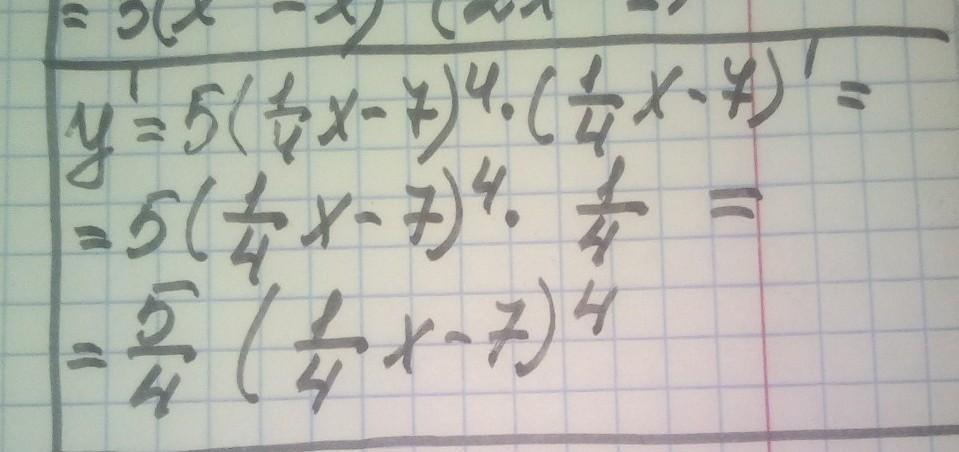 y' = 5(1/4 x - 7)^4 · (1/4 x - 7)' =
= 5(1/4 x - 7)^4 · 1/4 =
= 5/4 (1/4 x - 7)^4